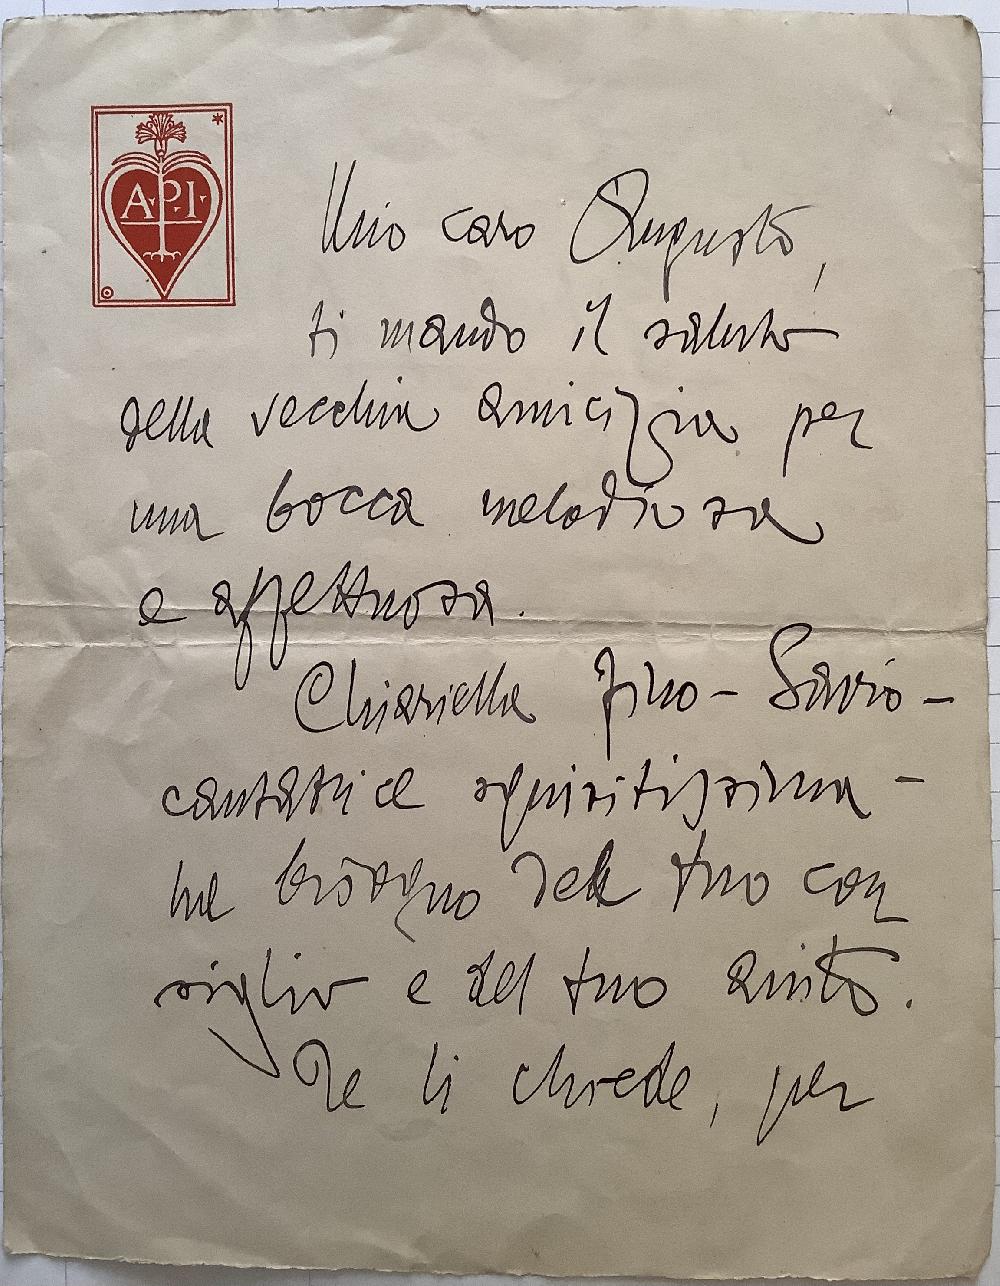 A·P·I·
Mio caro Augusto,
ti mando il saluto
della vecchia amicizia per
una bocca melodiosa
e affettuosa.
Chiarella Fino-Savio-
cantatrice squisitissima-
ha bisogno del tuo con
siglio e del tuo aiuto.
Te li chiede, per